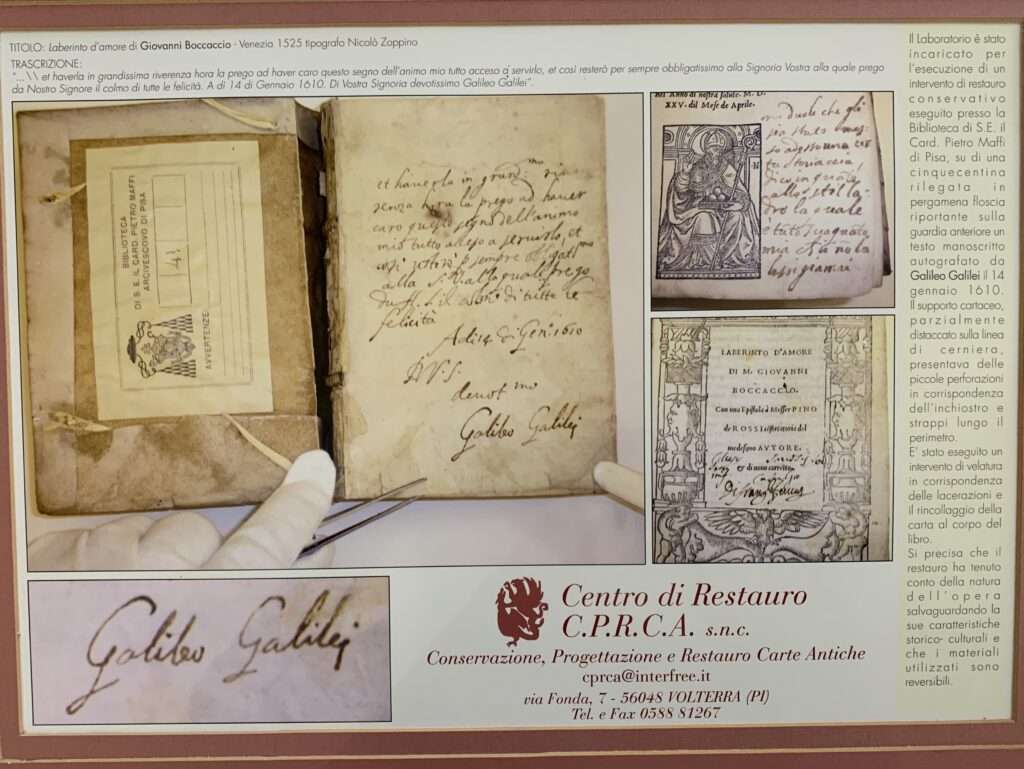 TITOLO: Laberinto d'amore di Giovanni Boccaccio - Venezia 1525 tipografo Nicolò Zoppino
TRASCRIZIONE:
"...\\ et haverla in grandissima riverenza hora la prego ad haver caro questo segno dell'animo mio tutto acceso a servirlo, et così resterò per sempre obbligatissimo alla Signoria Vostra alla quale prego
da Nostro Signore il colmo di tutte le felicità. A di 14 di Gennaio 1610. Di Vostra Signoria devotissimo Galileo Galilei".
BIBLIOTECA
DI S. E. IL CARD. PIETRO MAFFI
ARCIVESCOVO DI PISA
AVVERTENZE:
et haverla in grand.ma
senza hora la prego ad haver
caro questo segno dell'animo
mio tutto acceso a servirlo, et
così resterò p sempre obligatmo
alla S. V. alla quale prego
da N. S. il colmo di tutte le
felicità
A di 14 di Gen. 1610
D V. S.
devot.mo
Galileo Galilei
nel Anno di nostra salute. M. D.
XXV. adi del Mese de Aprile.
LABERINTO D'AMORE
DI M. GIOVANNI
BOCCACCIO.
Con una Epistola à Messer PINO
de ROSSI
medesimo AVTORE.
et di nuovo corretto
Galileo Galilei
Centro di Restauro
C.P.R.C.A. s.n.c.
Conservazione, Progettazione e Restauro Carte Antiche
cprca@interfree.it
via Fonda, 7 - 56048 VOLTERRA (PI)
Tel. e Fax 0588 81267
Il Laboratorio è stato
incaricato per
l'esecuzione di un
intervento di restauro
conservativo
eseguito presso la
Biblioteca di S.E. il
Card. Pietro Maffi
di Pisa, su di una
cinquecentina
rilegata in
pergamena floscia
riportante sulla
guardia anteriore un
testo manoscritto
autografato da
Galileo Galilei il 14
gennaio 1610.
Il supporto cartaceo,
parzialmente
distaccato sulla linea
di cerniera,
presentava delle
piccole perforazioni
in corrispondenza
dell'inchiostro e
strappi lungo il
perimetro.
E' stato eseguito un
intervento di velatura
in corrispondenza
delle lacerazioni e
il rincollaggio della
carta al corpo del
libro.
Si precisa che il
restauro ha tenuto
conto della natura
dell'opera
salvaguardando la
sue caratteristiche
storico- culturali e
che i materiali
utilizzati sono
reversibili.